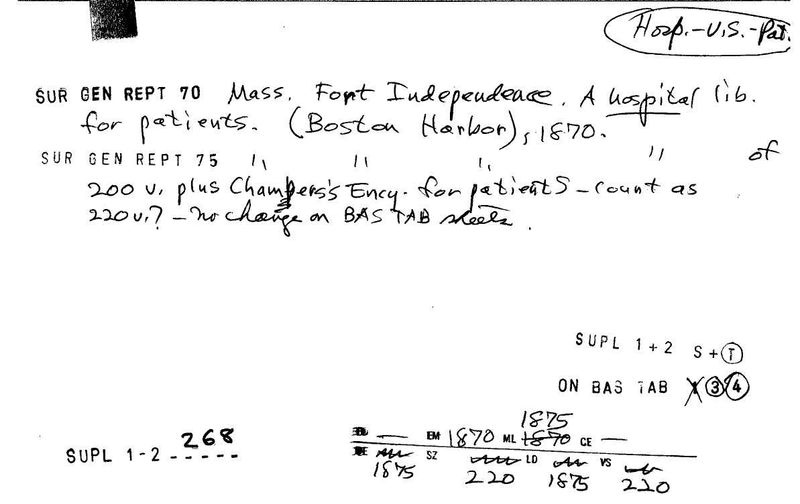 Hosp.-U.S.-Pat.
SUR GEN REPT 70 Mass. Fort Independence. A hospital lib.
for patients. (Boston Harbor), 1870.
SUR GEN REPT 75 " " " " of
200 v. plus Chambers's Ency. for patients - count as
220 v.? - no change on BAS TAB sheets.
SUPL 1+2 S+T
ON BAS TAB 1 3 4
1875
EM 1870 ML 1870 CE —
SUPL 1-2 268
SZ LD VS
1875 220 1875 220